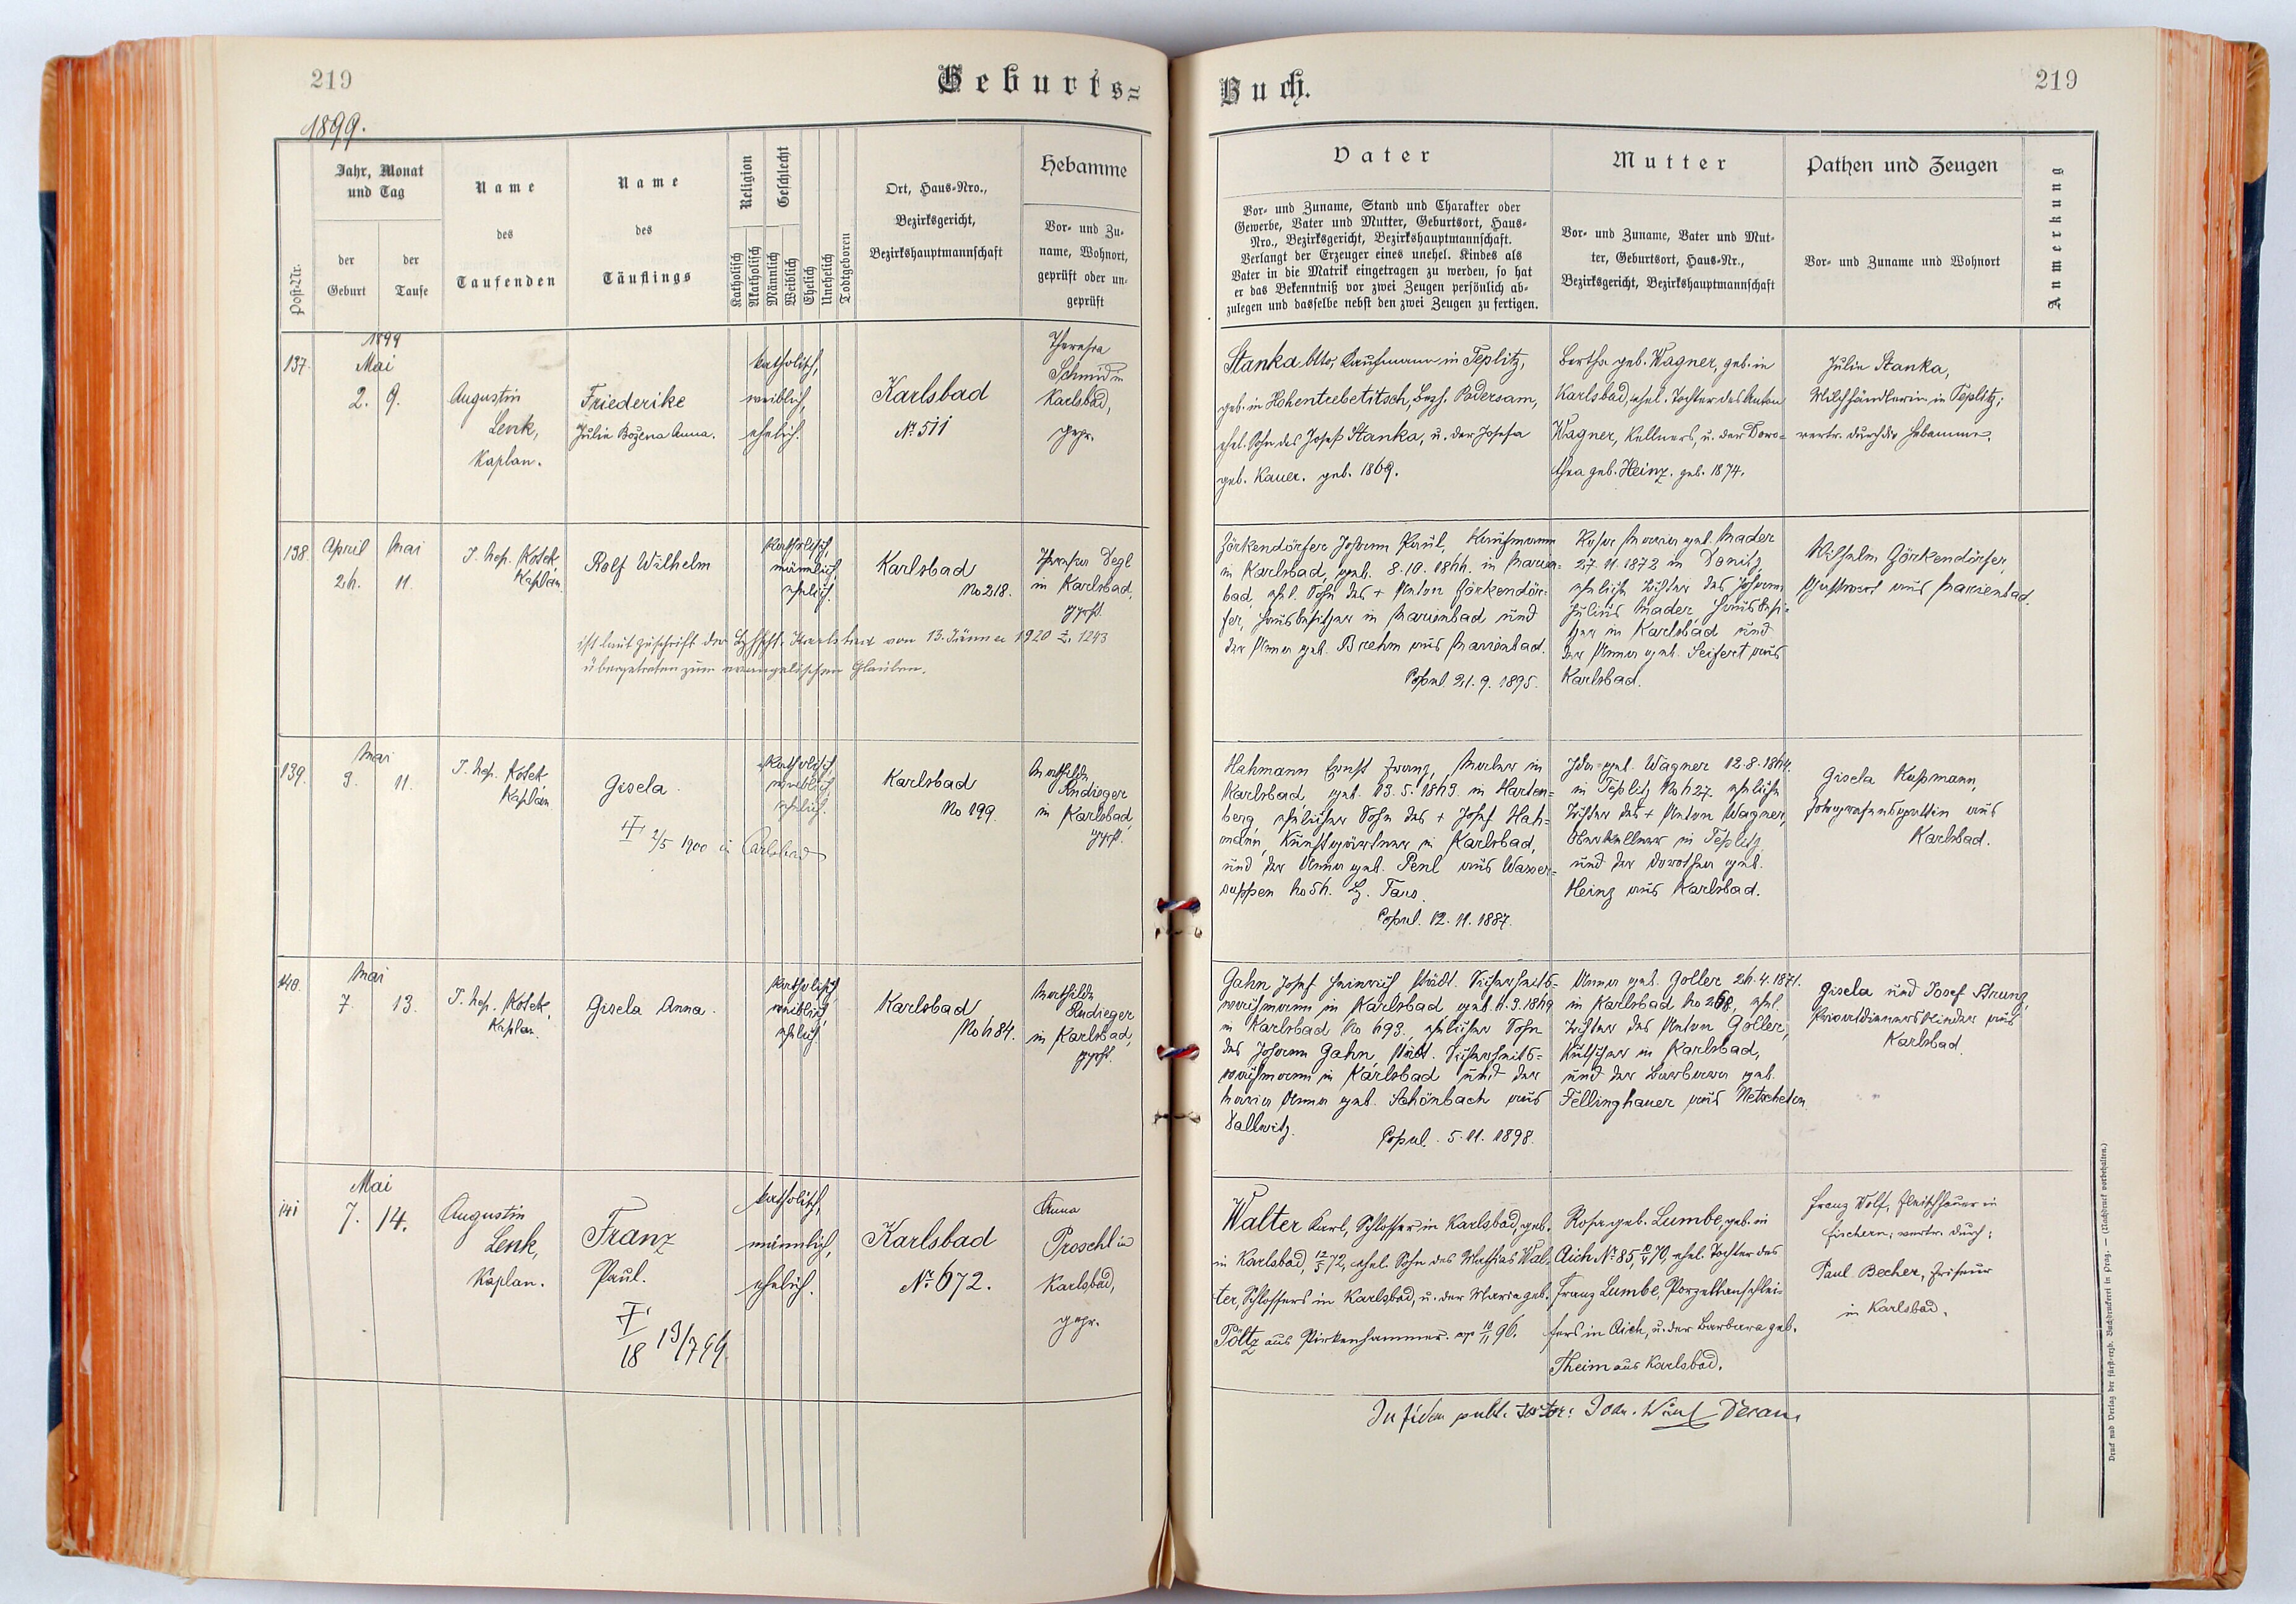 219
Geburts=
1899.
Post-Nr.
Jahr, Monat
und Tag
der
Geburt
der
Taufe
Name
des
Taufenden
Name
des
Täuflings
Religion
Geschlecht
Katholisch
Akatholisch
Männlich
Weiblich
Ehelich
Unehelich
Todtgeboren
Ort, Haus-Nro.,
Bezirksgericht,
Bezirkshauptmannschaft
Hebamme
Vor- und Zu-
name, Wohnort,
geprüft oder un-
geprüft
137.
1899
Mai
2. 9.
Augustin
Lenk,
Kaplan.
Friederike
Julie Božena Anna.
katholisch,
weiblich,
ehelich.
Karlsbad
Nr. 511
Theresia
Schmid in
Karlsbad,
gepr.
138.
April Mai
24. 11.
J. Nep. Kotek
Kaplan
Rolf Wilhelm
katholisch,
männlich,
ehelich.
Karlsbad
No 218.
Theresia Degl
in Karlsbad,
gepft.
ist laut Zuschrift der Bzhptsch. Karlsbad von 13. Jänner 1920 Z. 1243
übergetreten zum evangelischen Glauben.
139.
Mai
3. 11.
J. Nep. Kotek
Kaplan
Gisela.
katholisch
weiblich,
ehelich.
Karlsbad
No 199.
Mathilde
Rudieger
in Karlsbad,
gepft.
2/5 1900 in Carlsbad
140.
Mai
7. 13.
J. Nep. Kotek,
Kaplan.
Gisela Anna.
katholisch
weiblich,
ehelich.
Karlsbad
No 484.
Mathilde
Rudieger
in Karlsbad,
gepft.
141
Mai
7. 14.
Augustin
Lenk,
Kaplan.
Franz
Paul.
katholisch,
männlich,
ehelich.
Karlsbad
Nr. 672.
Anna
Proschl in
Karlsbad,
gepr.
18 13/7 99.
Buch.
219
Vater
Vor- und Zuname, Stand und Charakter oder
Gewerbe, Vater und Mutter, Geburtsort, Haus-
Nro., Bezirksgericht, Bezirkshauptmannschaft.
Verlangt der Erzeuger eines unehel. Kindes als
Vater in die Matrik eingetragen zu werden, so hat
er das Bekenntniß vor zwei Zeugen persönlich ab-
zulegen und dasselbe nebst den zwei Zeugen zu fertigen.
Mutter
Vor- und Zuname, Vater und Mut-
ter, Geburtsort, Haus-Nr.,
Bezirksgericht, Bezirkshauptmannschaft
Pathen und Zeugen
Vor- und Zuname und Wohnort
Anmerkung
Stanka Otto, Kaufmann in Teplitz,
geb. in Hohentrebetitsch, Bezh. Podersam,
ehel. Sohn des Josef Stanka, u. der Josefa
geb. Kauer. geb. 1869.
Bertha geb. Wagner, geb. in
Karlsbad, ehel. Tochter des Anton
Wagner, Kellners, u. der Doro=
thea geb. Heinz. geb. 1874.
Julie Stanka,
Milchhändlerin in Teplitz;
vertr. durch die Hebamme.
Zörkendörfer Johann Paul, Kaufmann
in Karlsbad, geb. 8.10.1844. in Marien=
bad, ehl. Sohn des + Anton Zörkendör=
fer, Hausbesitzer in Marienbad und
der Anna geb. Brehm aus Marienbad.
Copul. 21.9.1895.
Rosa Maria geb. Mader
27.11.1872 in Donitz,
eheliche Tochter des Johann
Julius Mader Hausbesi=
tzer in Karlsbad und
der Anna geb. Seifert aus
Karlsbad.
Wilhelm Zörkendörfer,
Gastwirt aus Marienbad.
Hahmann Ernst Franz, Maler in
Karlsbad, geb. 13.5.1863. in Harten=
berg, ehelicher Sohn des + Josef Hah=
mann, Kunstgärtner in Karlsbad,
und der Anna geb. Penl aus Wasser=
suppen No 54. Bz. Taus.
Copul. 12.11.1887.
Ida geb. Wagner 12.8.1864.
in Teplitz No 427. eheliche
Tochter des + Anton Wagner,
Oberkellner in Teplitz
und der Dorothea geb.
Heinz aus Karlsbad.
Gisela Kupmann,
Fotografensgattin aus
Karlsbad.
Gahn Josef Heinrich städt. Sicherheits=
wachmann in Karlsbad, geb. 11.3.1869
in Karlsbad No 693, ehelicher Sohn
des Johann Gahn, städt. Sicherheits=
wachmann in Karlsbad und der
Maria Anna geb. Schönbach aus
Dallwitz.
Copul. 5.11.1898.
Anna geb. Goller 24.4.1871.
in Karlsbad No 268, ehel.
Tochter des Anton Goller,
Kutscher in Karlsbad,
und der Barbara geb.
Fellinghauer aus Netscheten.
Gisela und Josef Strunz,
Privatdienerskinder aus
Karlsbad.
Walter Karl, Schlosser in Karlsbad, geb.
in Karlsbad, 12/5 72, ehel. Sohn des Mathias Wal=
ter, Schlossers in Karlsbad, u. der Maria geb.
Pöltz aus Pirkenhammer. cop 10/11 96.
Rosa geb. Lumbe, geb. in
Aich Nr. 85, 70, ehel. Tochter des
Franz Lumbe, Porzellanschlei=
fers in Aich, u. der Barbara geb.
Theim aus Karlsbad.
Franz Wolf, Fleischhauer in
Fischern; vertr. durch:
Paul Becher, Friseur
in Karlsbad.
In fidem publ.
Decan
Druck und Verlag der fürst-erzb. Buchdruckerei in Prag. — (Nachdruck vorbehalten.)